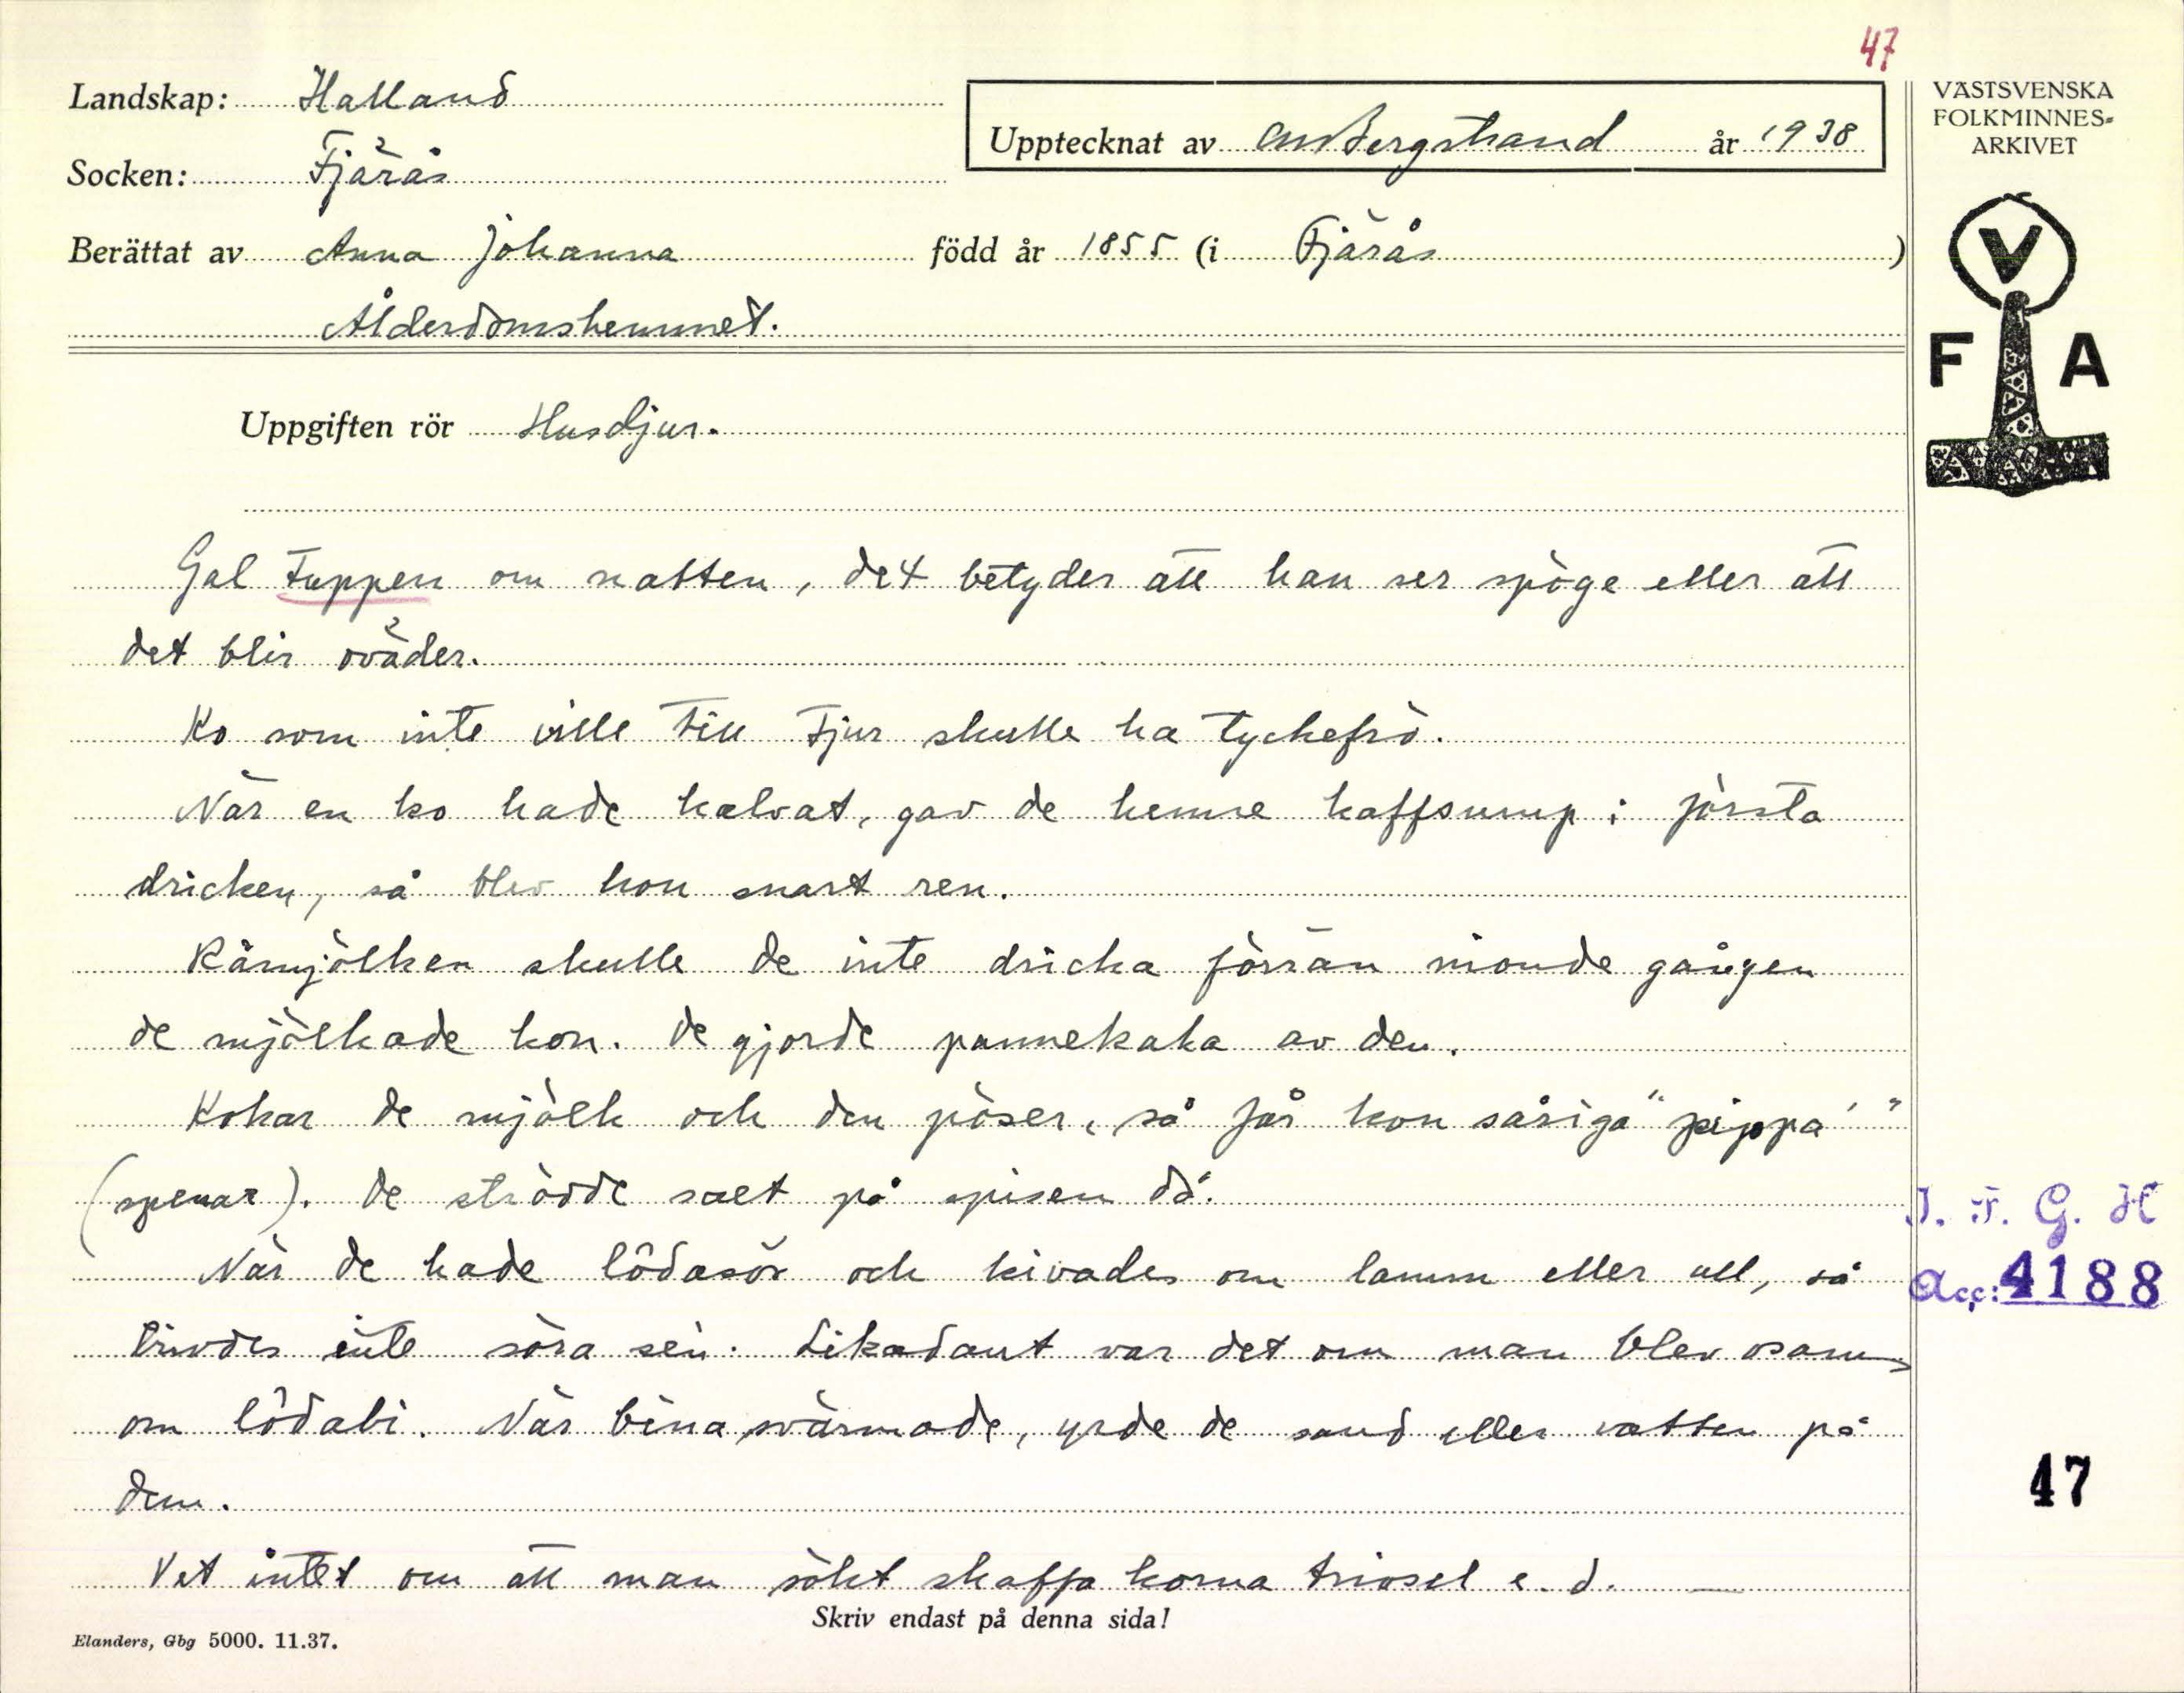 47
Landskap: Halland
Upptecknat av C.M. Bergstrand år 1938
Socken: Fjärås
Berättat av Anna Johanna född år 1855 (i Fjärås)
Ålderdomshemmet.
VÄSTSVENSKA
FOLKMINNES-
ARKIVET
V
F A
Uppgiften rör Husdjur.
Gal tuppen om natten, det betyder att han ser spöge eller att
det blir oväder.
Ko som inte ville till tjur skulle ha tyckefrö.
När en ko hade kalvat, gav de henne kaffsump i första
dricken, så blev hon snart ren.
Råmjölken skulle de inte dricka förrän nionde gången
de mjölkade kon. De gjorde pannekaka av den.
Kokar de mjölk och den pöser, så får kon såriga "pippa"
(spenar). De strödde salt på spisen då.
När de hade lödasör och kivades om lamm eller ull, så
trivdes inte söra sen. Likadant var det om man blev osams
om lödabi. När bina svärmade, yrde de sand eller vatten på
dem.
Vet intet om att man sökt skaffa korna trivsel e. d. —
I. F. G. H
Acc: 4188
47
Skriv endast på denna sida!
Elanders, Gbg 5000. 11.37.